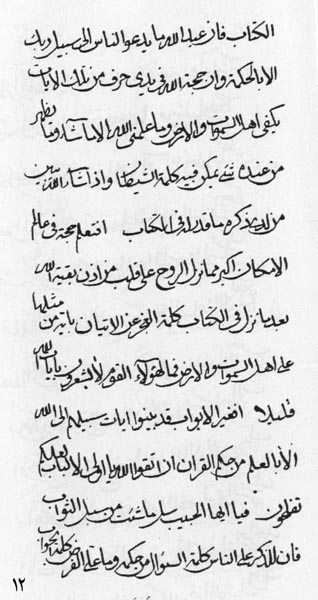 الكتاب فان عبد الله ما يدعو الناس الى سبيل ربك
الا بالحكمة وان حجة الله في يدى حرف من تلك الايات
يكفى اهل السموات والارض وما علمنى الله الا ما شاء وما يظهر
من عنده شئ يمكن فيه كلمة الشيطان واذا شاء الله يبين
من لدنه ذكره ما قدر الله في الكتاب افتعلم حجة في عالم
الامكان اكبر مما نزل الروح على قلب من اذن بقية الله
بعد ما نزل في الكتاب كلمة العجز عن الاتيان باية من مثلها
على اهل السموات والارض فما لهؤلاء القوم لا يشعرون بايات الله
قليلا افغير الابواب قد بينوا ايات سبيلهم الى الله
الا بالعلم من حكم القران ان اتقوا الله يا اولى الالباب لعلكم
تفلحون فيا ايها الحبيب سل ما شئت من سبل الثواب
فان للذكر على الناس كلمة السؤال من حكمه وما على الفرض كلمة الجواب
١٢